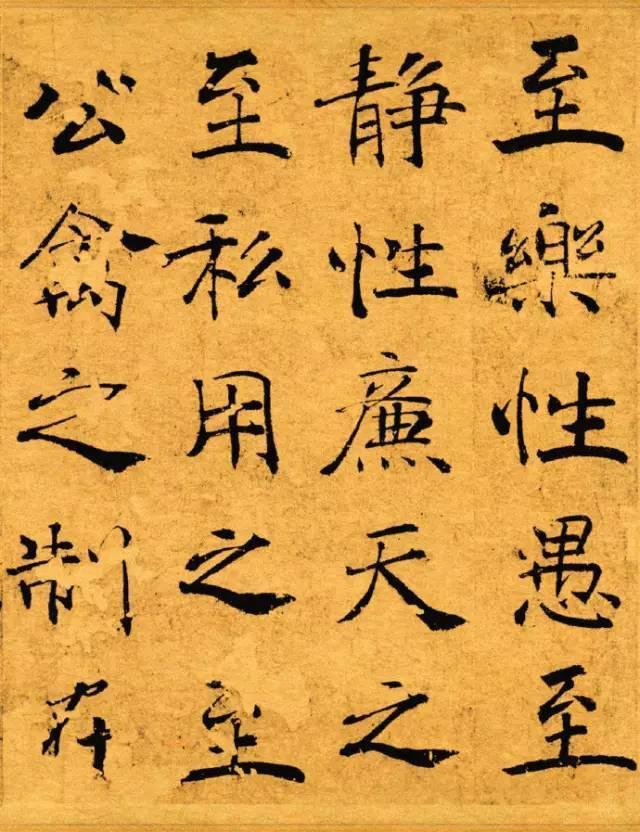 至樂性愚至
靜性廉天之
至私用之至
公禽之制